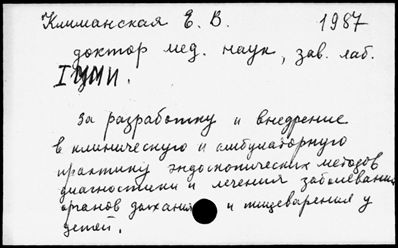 Климанская Е. В. 1987
доктор мед. наук, зав. лаб.
I ММИ.
за разработку и внедрение
в клиническую и амбулаторную
практику эндоскопических методов
диагностики и лечения заболевания
органов дыхания и пищеварения у
детей.